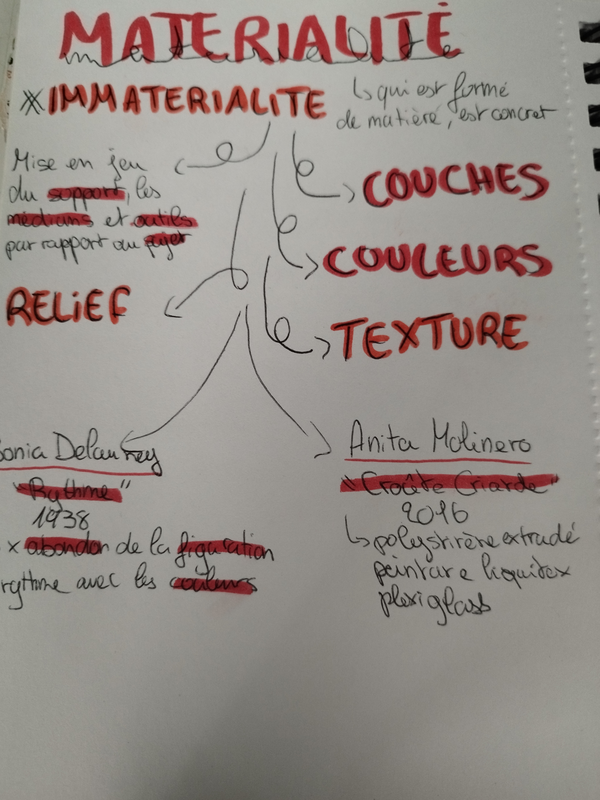 MATERIALITÉ
materialite
IMMATERIALITE
↳ qui est formé
de matière, est concret
Mise en jeu
du support, les
médiums et outils
par rapport au sujet
COUCHES
COULEURS
RELIEF
TEXTURE
Sonia Delaunay
"Rythme"
1938
x abandon de la figuration
rythme avec les couleurs
Anita Molinero
"Croûte Criarde"
2016
↳ polystirène extrudé
peinture liquitex
plexiglass